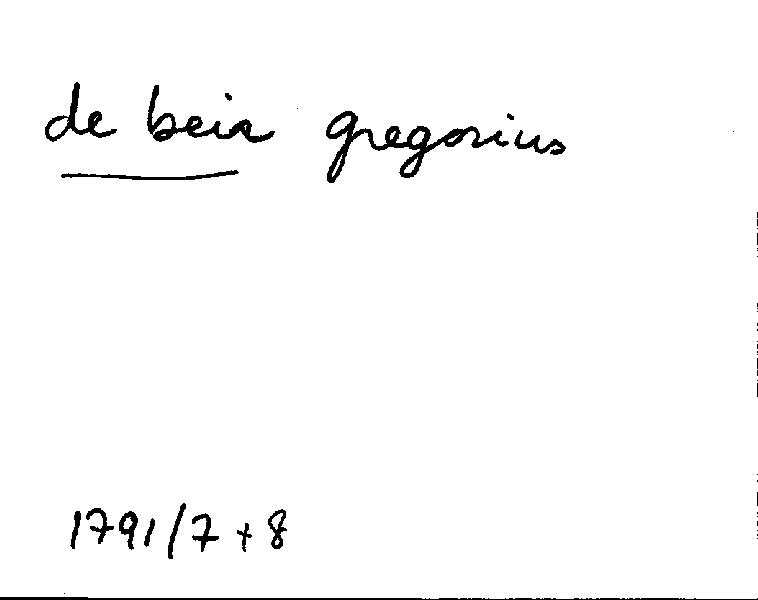 de beir gregorius
1791/7 + 8